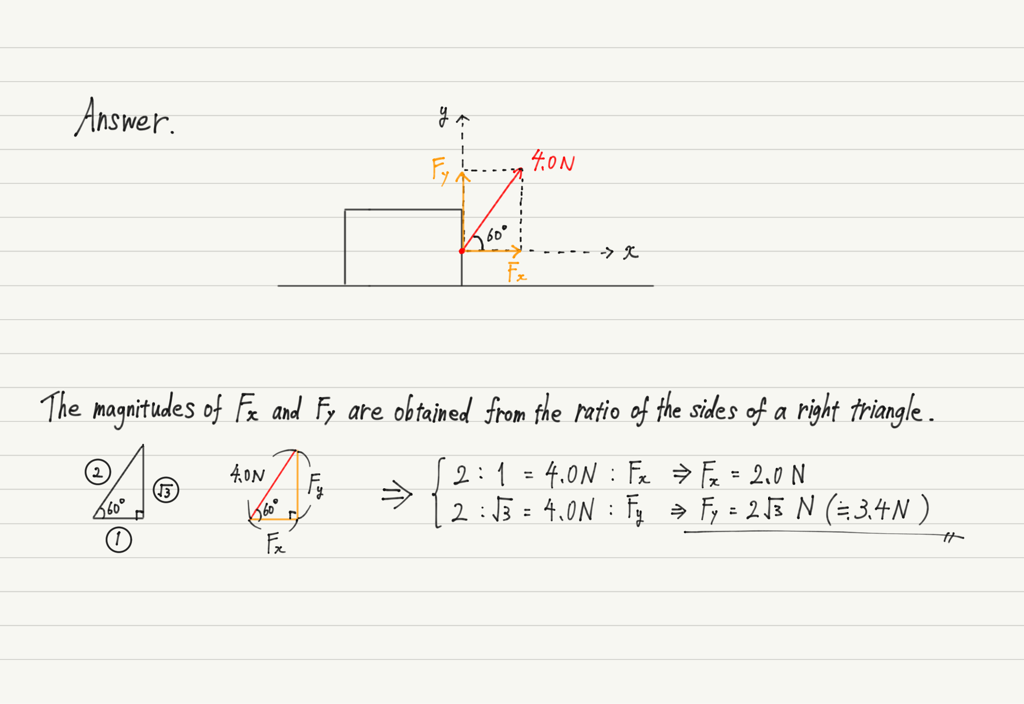 Answer.
y
Fy
4.0N
60°
x
Fx
The magnitudes of Fx and Fy are obtained from the ratio of the sides of a right triangle.
② 60° √3 ①
4.0N 60° Fy Fx
⇒ { 2 : 1 = 4.0N : Fx ⇒ Fx = 2.0 N
2 : √3 = 4.0N : Fy ⇒ Fy = 2√3 N (≒3.4N)